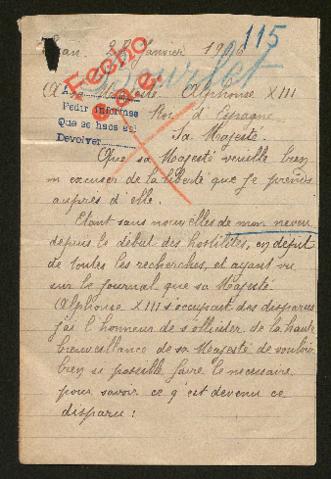 Janvier 1916
115
Fecho
A sa Majesté Alphonse XIII
Pedir informes
Que se hace saber
Devolver
Roi d'Espagne
Sa Majesté.
Que sa Majesté veuille bien
m excuser de la liberté que je prends
auprès d'elle.
Etant sans nouvelles de mon neveu
depuis le début des hostilités, en dépit
de toutes les recherches, et ayant vu
sur le journal que sa Majesté
Alphonse XIII s'occupait des disparus
j'ai l'honneur de solliciter de la haute
bienveillance de sa Majesté de vouloir
bien si possible faire le nécessaire
pour savoir ce q'est devenu ce
disparu :